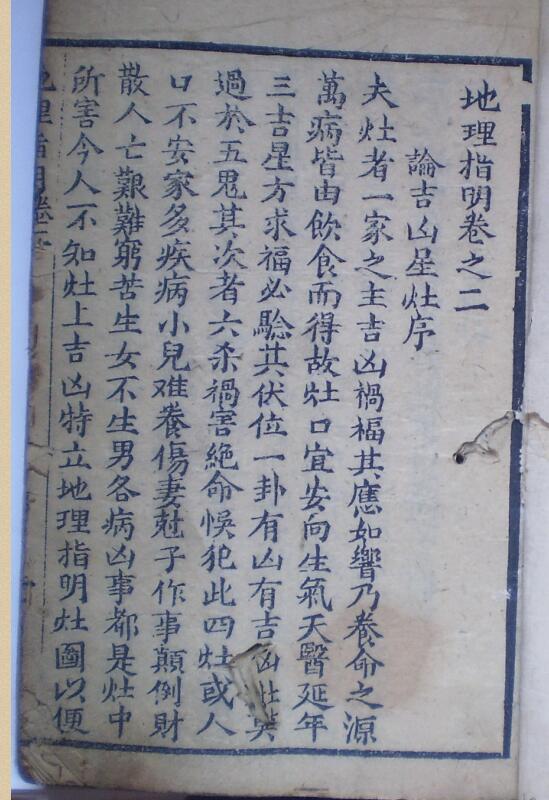 地理指明卷之二
論吉凶星灶序
夫灶者一家之主吉凶禍福其應如響乃養命之源
萬病皆由飲食而得故灶口宜安向生氣天醫延年
三吉星方求福必驗其伏位一卦有凶有吉凶灶莫
過於五鬼其次者六杀禍害絕命悮犯此四灶或人
口不安家多疾病小兒难養傷妻尅子作事顛倒財
散人亡艱難窮苦生女不生男各病凶事都是灶中
所害今人不知灶上吉凶特立地理指明灶圖以便
地理指明卷二